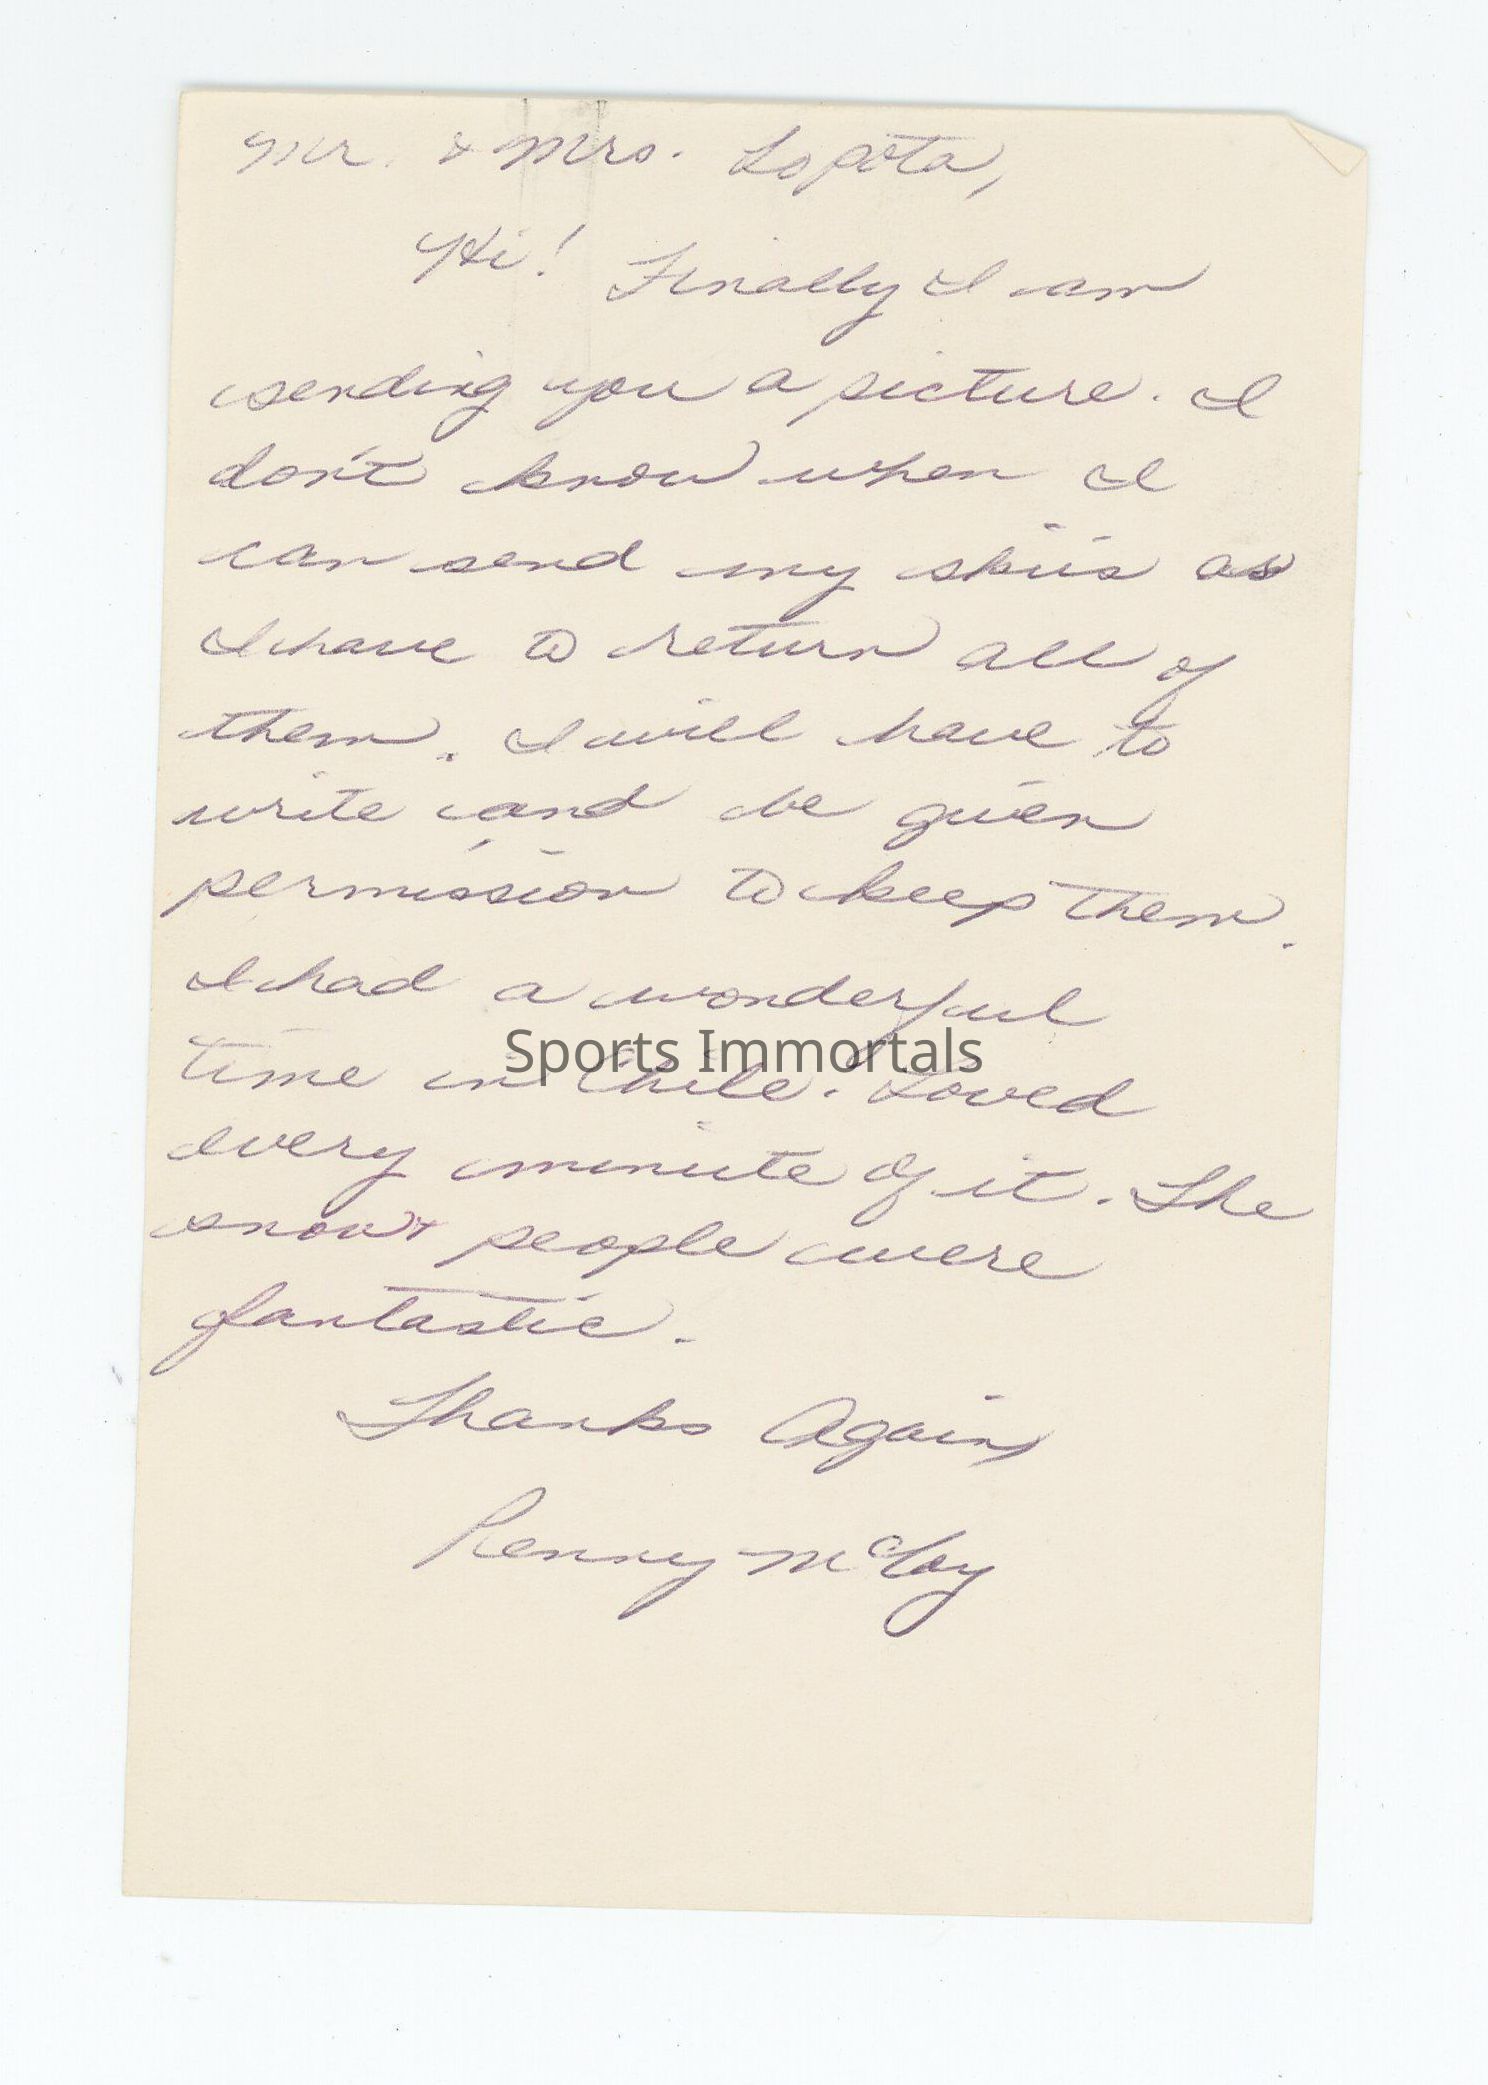 Mr. & Mrs. Lopota,
Hi! Finally I am
sending you a picture. I
don't know when I
can send my skiis as
I have to return all of
them. I will have to
write and be given
permission to keep them.
I had a wonderful
Sports Immortals
time in Chile. Loved
every minute of it. The
snow & people were
fantastic.
Thanks Again,
Penny McCoy